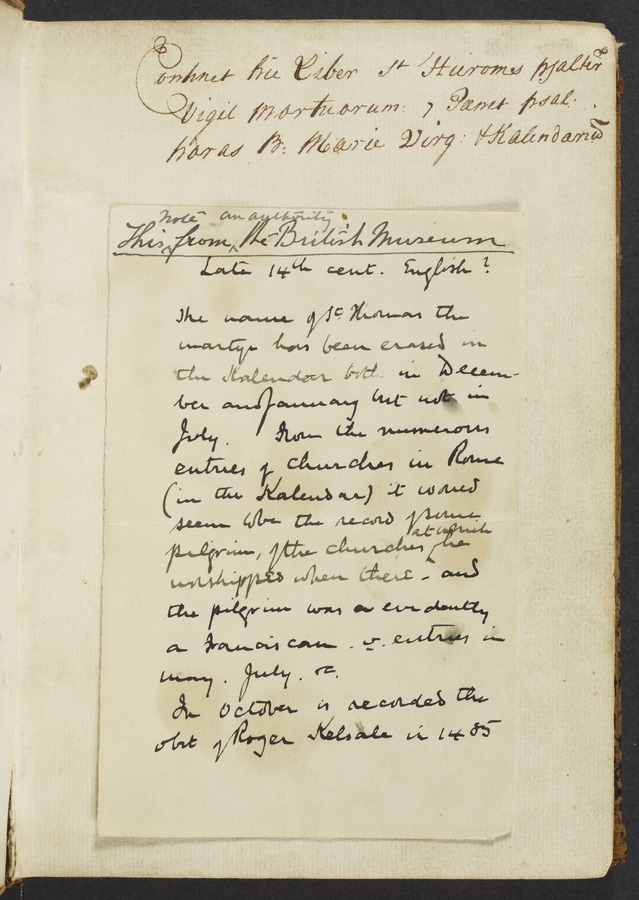 Continet hic Liber St Hieromes psalter
Vigil mortuorum: 7 Panit psal:
horas B: Marie Virg: & Kalendariū
note an authority
This from the British Museum
Late 14th cent. English?
The name of St Thomas the
martyr has been erased in
the Kalendar both in Decem-
ber and January but not in
July. From the numerous
entries of churches in Rome
(in the Kalendar) it would
seem to be the record of some
at which
pilgrim, of the churches he
worshipped when there - and
the pilgrim was evidently
a Franciscan. v. entries in
may. July. &c.
In October is recorded the
obit of Roger Kelsale in 1485